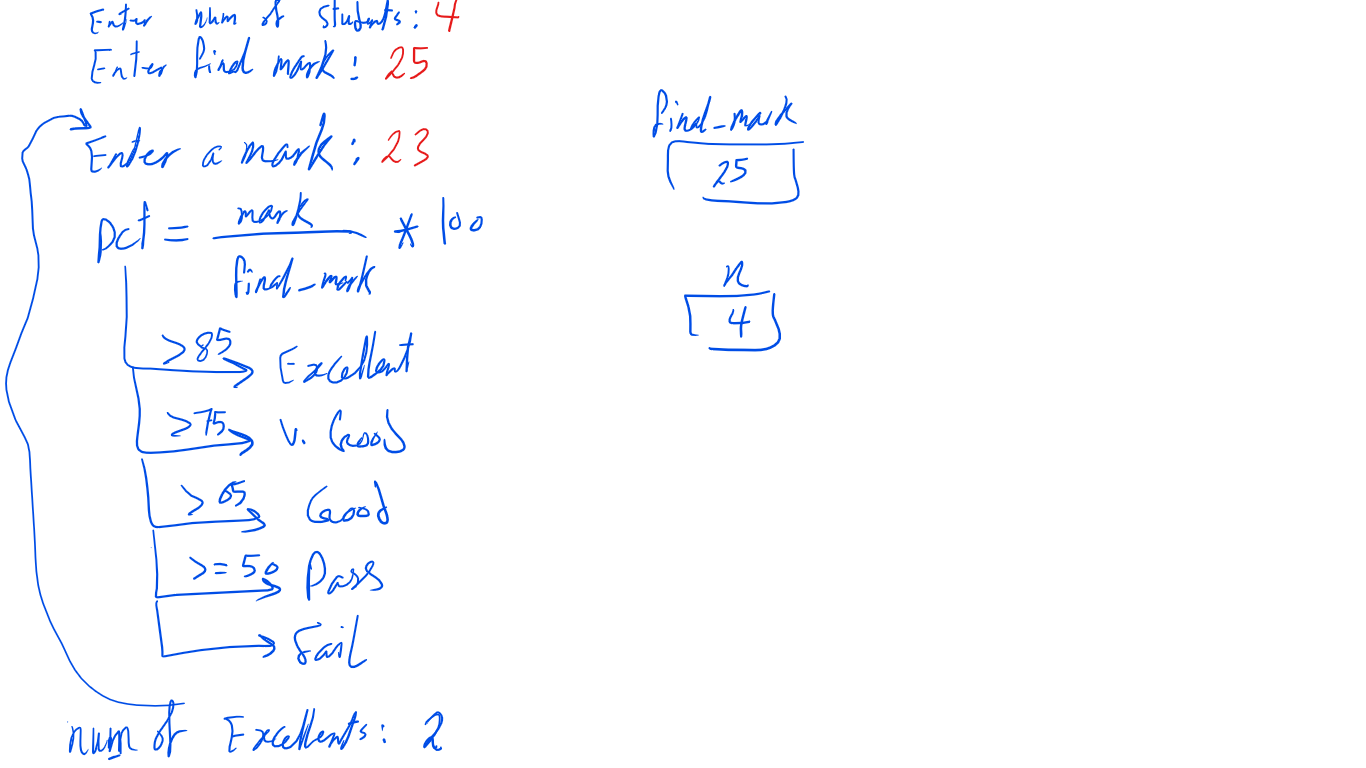 Enter num of students: 4
Enter final mark: 25
Enter a mark: 23
pct = mark / final_mark * 100
>85 Excellent
>75 V. Good
>65 Good
>=50 Pass
Fail
num of Excellents: 2
final_mark
25
n
4